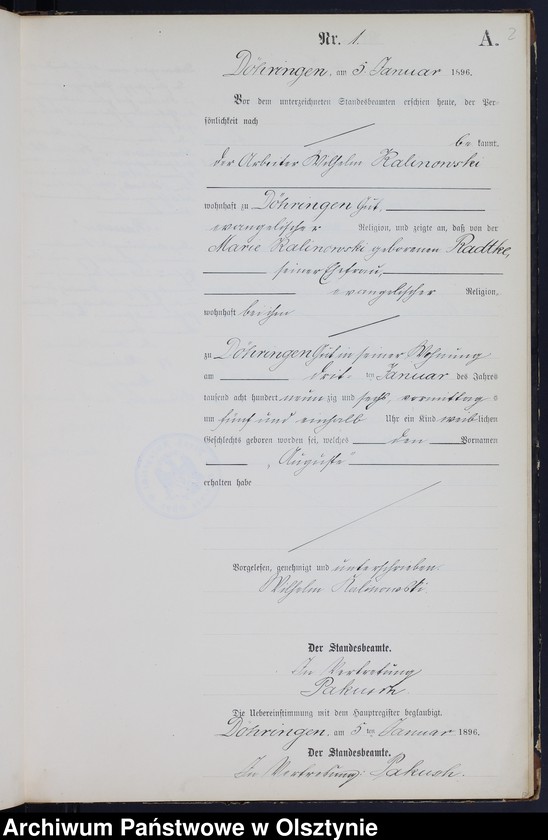 Nr. 1.
A.
2
Döhringen, am 5. Januar 1896.
Vor dem unterzeichneten Standesbeamten erschien heute, der Per-
sönlichkeit nach
be kannt,
der Arbeiter Wilhelm Kalinowski
wohnhaft zu Döhringen Gut
evangelischer Religion, und zeigte an, daß von der
Marie Kalinowski geborenen Radtke,
seiner Ehefrau,
evangelischer Religion,
wohnhaft bei ihm
zu Döhringen Gut in seiner Wohnung
am drit- ten Januar des Jahres
tausend acht hundert neun zig und sechs, vormittag s
um fünf und einhalb Uhr ein Kind weib lichen
Geschlechts geboren worden sei, welches den Vornamen
„Auguste"
erhalten habe
Vorgelesen, genehmigt und unterschrieben
Wilhelm Kalinowski.
Der Standesbeamte.
In Vertretung
Pakusch.
Die Uebereinstimmung mit dem Hauptregister beglaubigt.
Döhringen, am 5 ten Januar 1896.
Der Standesbeamte.
In Vertretung: Pakusch.
Archiwum Państwowe w Olsztynie